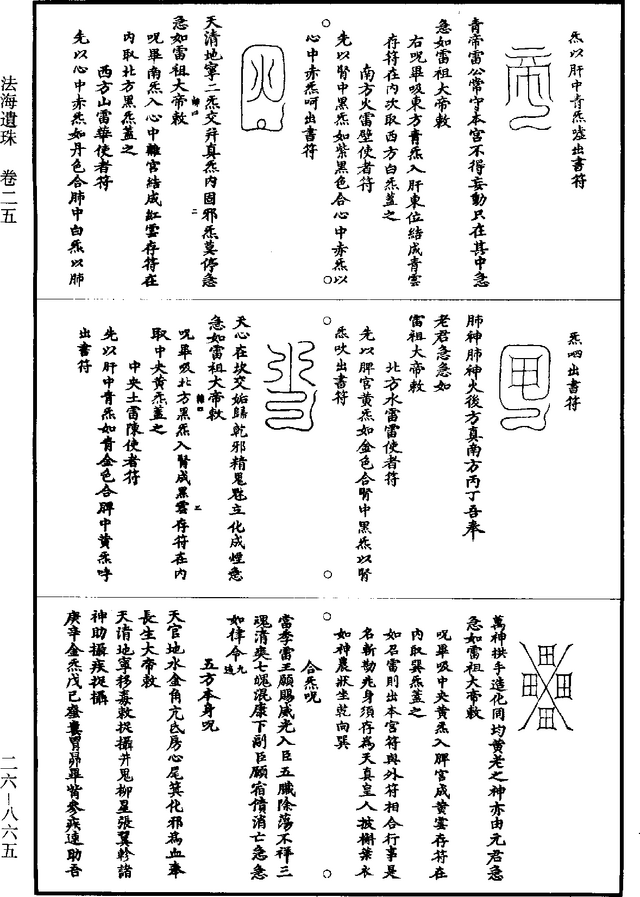 炁以肝中青炁嘘出書符
青帝雷公常守本宮不得妄動只在其中急
急如雷祖大帝敕
右呪畢吸東方青炁入肝東位結成青雲
存符在內次取西方白炁蓋之
南方火雷壁使者符
先以腎中黑炁如紫黑色合心中赤炁以
心中赤炁呵出書符
天清地寧二炁交并真炁內固邪炁莫停急
急如雷祖大帝敕
呪畢南炁入心中離宮結成紅雲存符在
內取北方黑炁蓋之
西方山雷華使者符
先以心中赤炁如丹色合肺中白炁以肺
炁呬出書符
肺神肺神火後方真南方丙丁吾奉
老君急急如
雷祖大帝敕
北方水雷雷使者符
先以脾宮黃炁如金色合腎中黑炁以腎
炁吹出書符
天心在坎交姤歸乾邪精鬼魅立化成煙急
急如雷祖大帝敕
呪畢吸北方黑炁入腎成黑雲存符在內
取中央黃炁蓋之
中央土雷陳使者符
先以肝中青炁如青金色合脾中黃炁呼
出書符
萬神拱手造化同均黃老之神亦由元君急
急如雷祖大帝敕
呪畢吸中央黃炁入脾宮成黃雲存符在
內取巽炁蓋之
如召雷則出本宮符與外符相合行事是
名斬勘兆身須存為天真皇人披槲葉衣
如神農狀坐乾向巽
合炁呪
當季雷王願賜威光入臣五臟除蕩不祥三
魂清爽七魄混康下副臣願宿債消亡急急
如律令 九遍
五方本身呪
天官地水金角亢氐房心尾箕化邪為血奉
長生大帝敕
天清地寧移毒敕捉攝井鬼柳星張翼軫諸
神助攝疾捉攝
庚辛金炁戊己奎婁胃昴畢觜參疾速助吾
法海遺珠 卷二五
二六-八六五